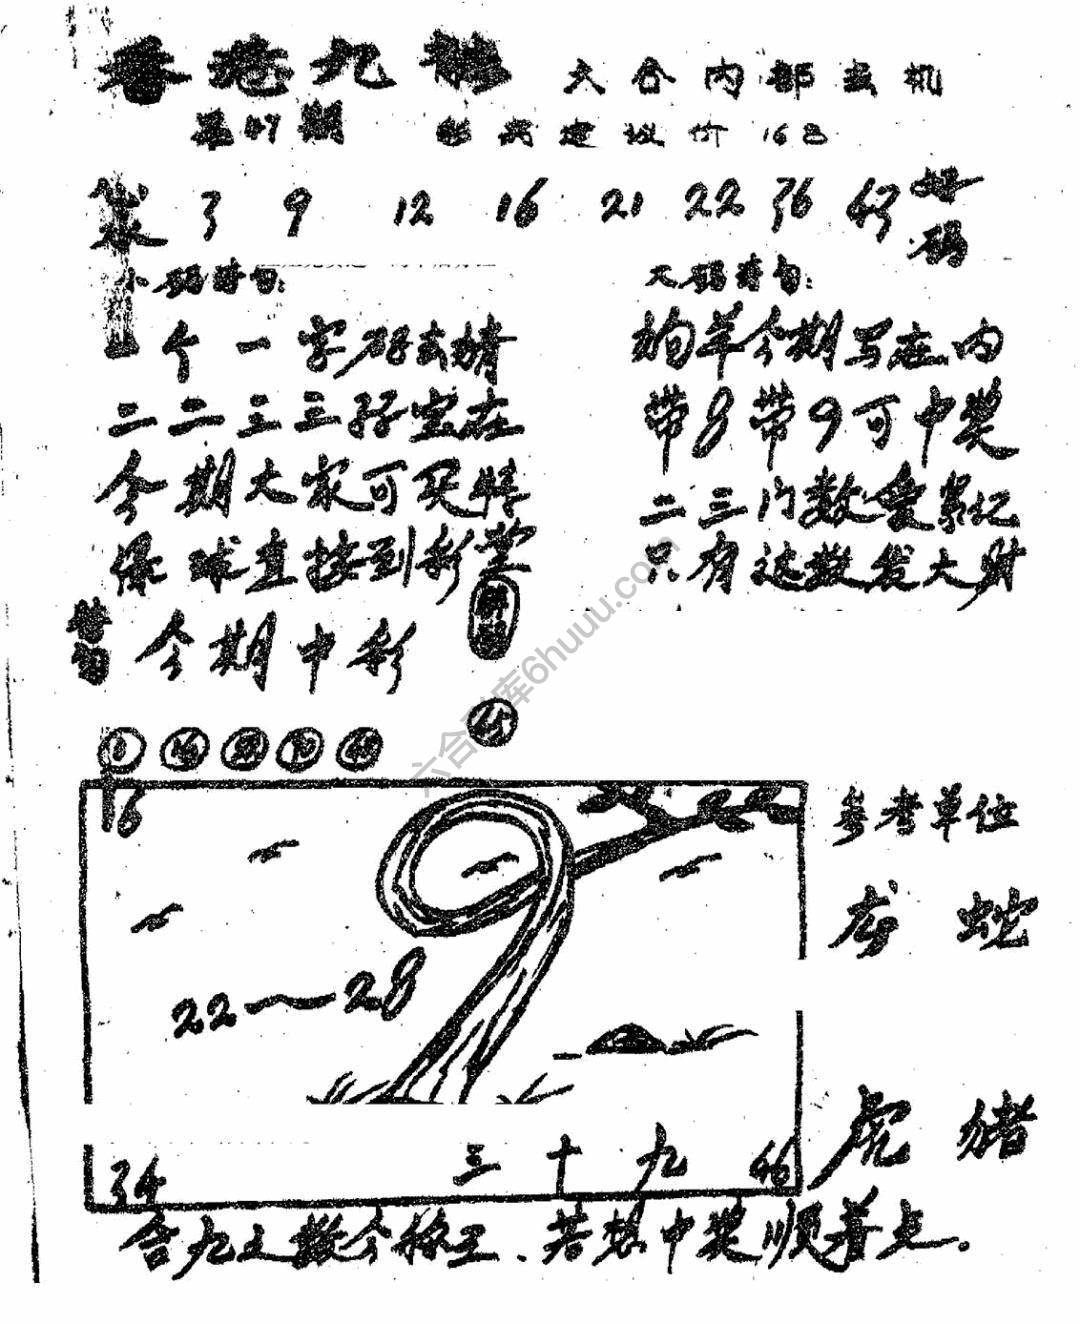 香港九龍 六合内部玄机
第47期 彩民建议价 16
3 9 12 16 21 22 36 好码
小码诗句: 大码诗句:
个一字码去猜
狗羊今期写在内
二二三三孖宝在
带8带9可中奖
今期大家可买特
二三门数爱累记
绿球直接到彩堂
只有这数发大财
替句 今期中彩
45
16
22~28
34 三十九 46
参考单位
龙 蛇
虎 猪
含九之数今称王、若想中奖顺着点。
六合 库6huuu.com